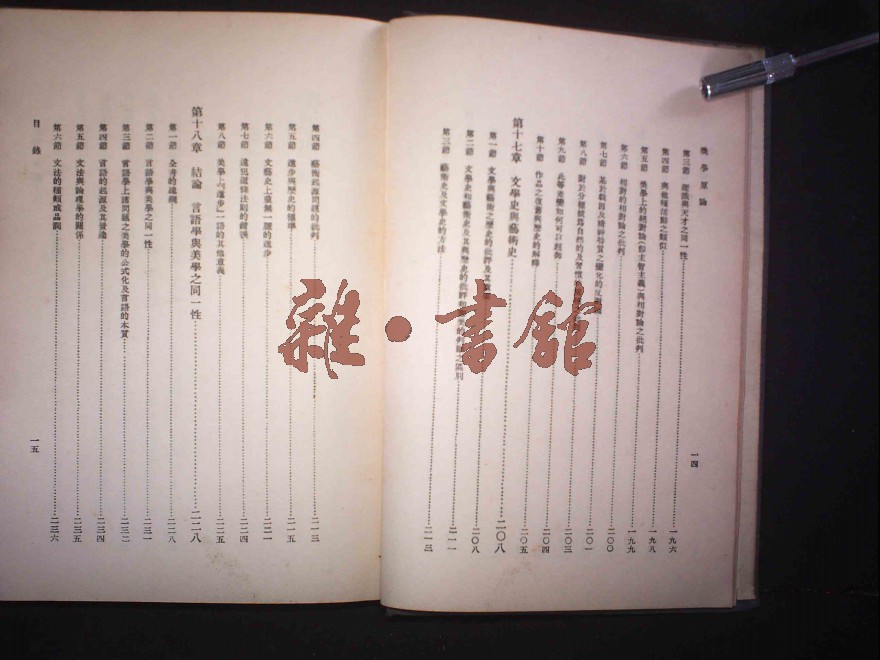 美學原論
第三節 鑑識與天才之同一性 一九六
第四節 與他種活動之類似 一九八
第五節 美學上的絕對論(即主智主義)與相對論之批判 一九九
第六節 相對的相對論之批判 二〇〇
第七節 基於刺因及精神特質之變化的反 二〇一
第八節 對於分種號爲自然的及習慣 二〇三
第九節 此等差變如何可以超御 二〇四
第十節 作品之復舊與歷史的解釋 二〇五
第十七章 文學史與藝術史 二〇八
第一節 文學與藝術之歷史的批評及其 二〇八
第二節 文學史和藝術史及其與歷史的批評 區別 二一一
第三節 藝術史及文學史的方法 二一三
一四
第四節 藝術起源問題的批判 二一三
第五節 進步與歷史的標準 二一五
第六節 文藝史上並無一線的進步 二二一
第七節 違犯這條法則的錯誤 二二四
第八節 美學上「進步」一語的其他意義 二二五
第十八章 結論 言語學與美學之同一性 二二八
第一節 全書的總觀 二二八
第二節 言語學與美學之同一性 二三一
第三節 言語學上諸問題之美學的公式化及言語的本質 二三二
第四節 言語的起源及其發達 二三四
第五節 文法與論理學的關係 二三五
第六節 文法的種類或品詞 二三六
目錄
一五
雜·書館